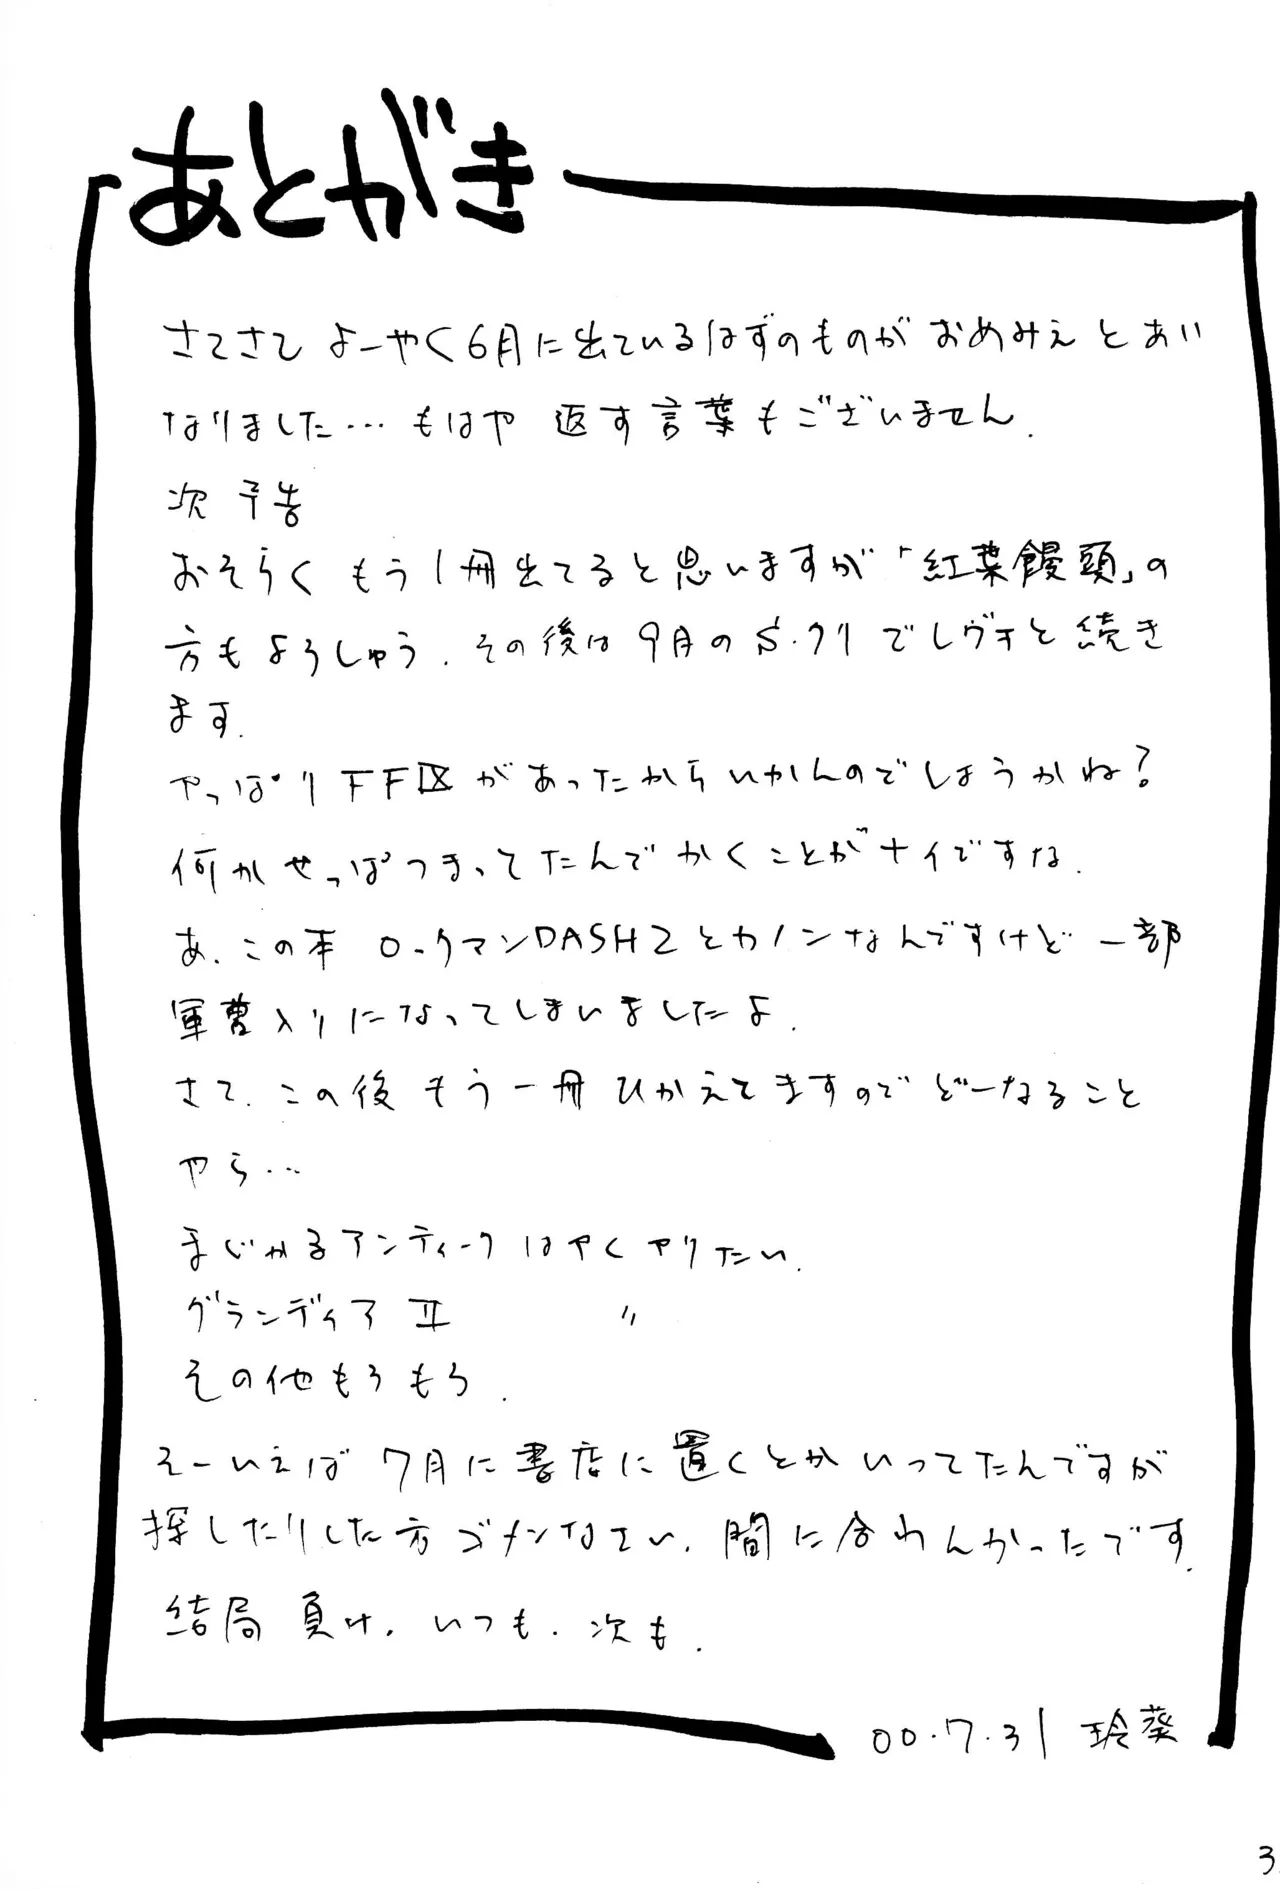 あとがき
さてさて よーやく6月に出ているはずのものが おめみえ とあい
なりました… もはや 返す言葉もございません.
次 予告
おそらく もう1冊出てると思いますが 「紅葉饅頭」の
方もよろしゅう. その後は 9月の S.クリ でレヴォと続き
ます.
やっぱり FFⅨ があったから いかんのでしょうかね?
何か せっぱつまってたんで かくことが ナイですな.
あ. この本 ロックマンDASH2 とカノンなんですけど 一部
軍曹入りになってしまいましたよ.
さて. この後 もう一冊 ひかえてますので どーなること
やら…
まじかるアンティーク はやくやりたい.
グランディア Ⅱ 〃
その他もろもろ.
そーいえば 7月に書店に置くとか いってたんですが
探したりした方 ゴメンなさい. 間に合わんかったです.
結局 負け. いつも. 次も.
00.7.31 玲葵
3